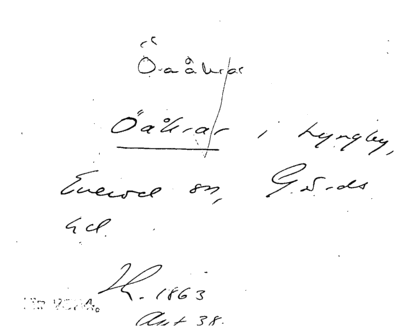 Öaåkrar
Öåkrar i Lyngby,
Everöd sn, Gärds
hd.
Lk. 1863
Akt 38.